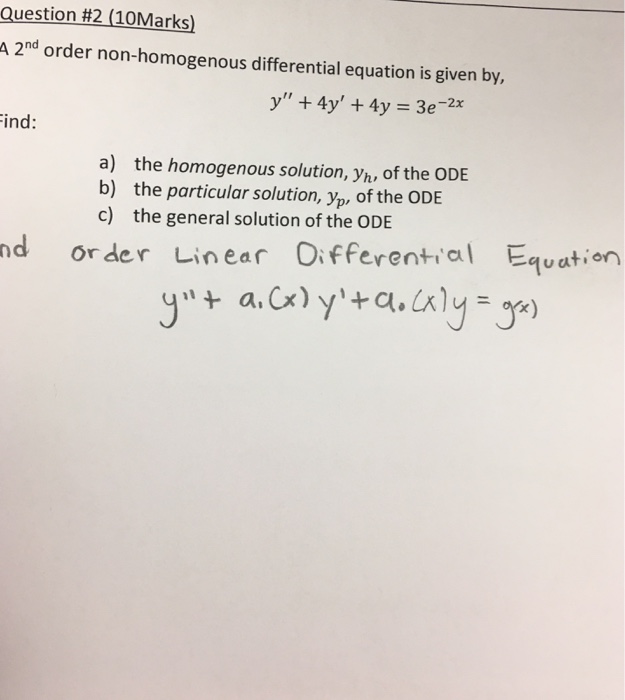 Question #2 (10Marks)
A 2nd order non-homogenous differential equation is given by,
y'' + 4y' + 4y = 3e^−2x
Find:
a) the homogenous solution, yh, of the ODE
b) the particular solution, yp, of the ODE
c) the general solution of the ODE
nd order Linear Differential Equation
y'' + a₁(x) y' + a₀(x) y = g(x)